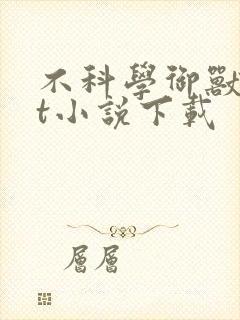 不科學御獸
t小說下載
層層